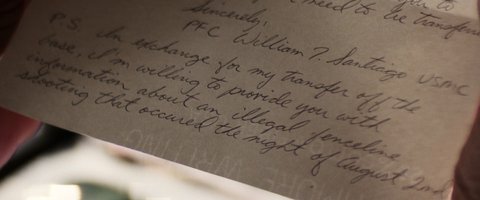 need to be transfe
Sincerely,
PFC William T. Santiago USMC
P.S. In exchange for my transfer off the
base, I'm willing to provide you with
information about an illegal fenceline
shooting that occured the night of August 2nd